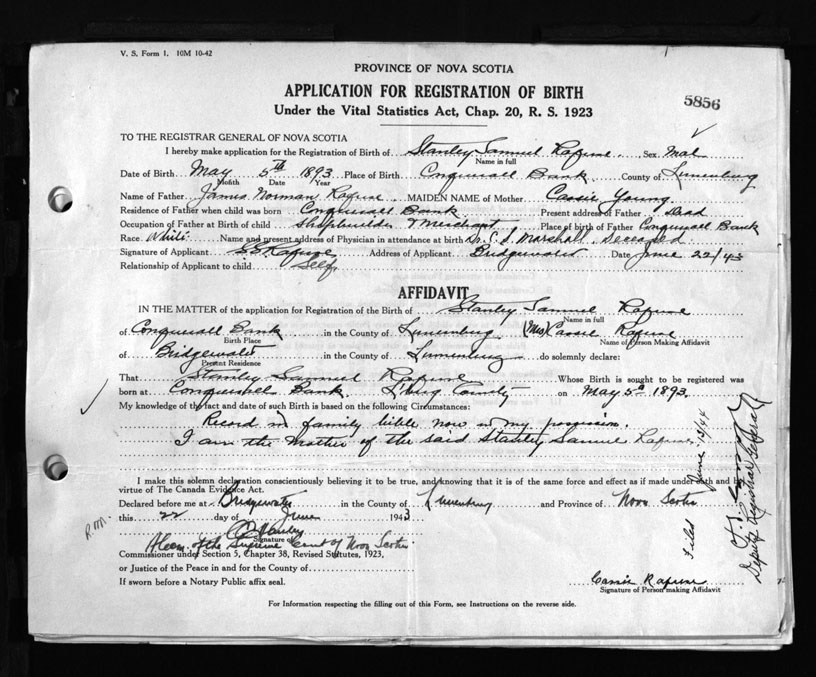 V. S. Form 1. 10M 10-42
PROVINCE OF NOVA SCOTIA
APPLICATION FOR REGISTRATION OF BIRTH
5856
Under the Vital Statistics Act, Chap. 20, R. S. 1923
TO THE REGISTRAR GENERAL OF NOVA SCOTIA
I hereby make application for the Registration of Birth of Stanley Samuel Rafuse Sex Mal
Name in full
Date of Birth May 5th 1893 Place of Birth Conquerall Bank County of Lunenburg
Month Date Year
Name of Father James Norman Rafuse MAIDEN NAME of Mother Cassie Young
Residence of Father when child was born Conquerall Bank Present address of Father Dead
Occupation of Father at Birth of child Shipbuilder & Merchant Place of birth of Father Conquerall Bank
Race White Name and present address of Physician in attendance at birth Dr. S. Marshall, Deceased
Signature of Applicant S. S. Rafuse Address of Applicant Bridgewater Date June 22/43
Relationship of Applicant to child Self
AFFIDAVIT
IN THE MATTER of the application for Registration of the Birth of Stanley Samuel Rafuse
Name in full
of Conquerall Bank in the County of Lunenburg (Mrs) Cassie Rafuse
Birth Place Name of Person Making Affidavit
of Bridgewater in the County of Lunenburg do solemnly declare:
Present Residence
That Stanley Samuel Rafuse Whose Birth is sought to be registered was
born at Conquerall Bank, L'burg County on May 5th 1893.
My knowledge of the fact and date of such Birth is based on the following Circumstances:
Record in family bible now in my possession.
I am the Mother of the said Stanley Samuel Rafuse
I make this solemn declaration conscientiously believing it to be true, and knowing that it is of the same force and effect as if made under oath and by
virtue of The Canada Evidence Act.
Declared before me at Bridgewater in the County of Lunenburg and Province of Nova Scotia
this 22 day of June 1943
Signature of
A Com. of the Supreme Court of Nova Scotia
Commissioner under Section 5, Chapter 38, Revised Statutes, 1923,
or Justice of the Peace in and for the County of
If sworn before a Notary Public affix seal.
Cassie Rafuse
Signature of Person making Affidavit
For Information respecting the filling out of this Form, see Instructions on the reverse side.
Filed June 13/44
Deputy Registrar General